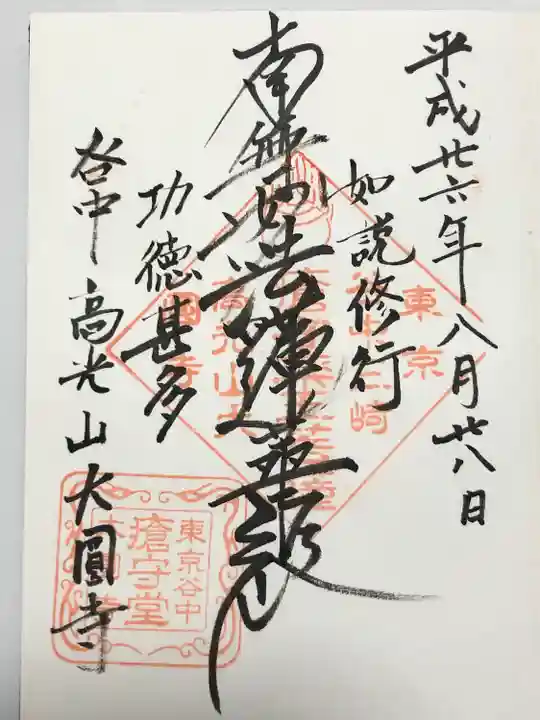 平成廿六年八月廿八日
如説修行
南無妙法蓮華経
功徳甚多
谷中 高光山大圓寺
東京
高光山大
圓寺
東京谷中
瘡守堂